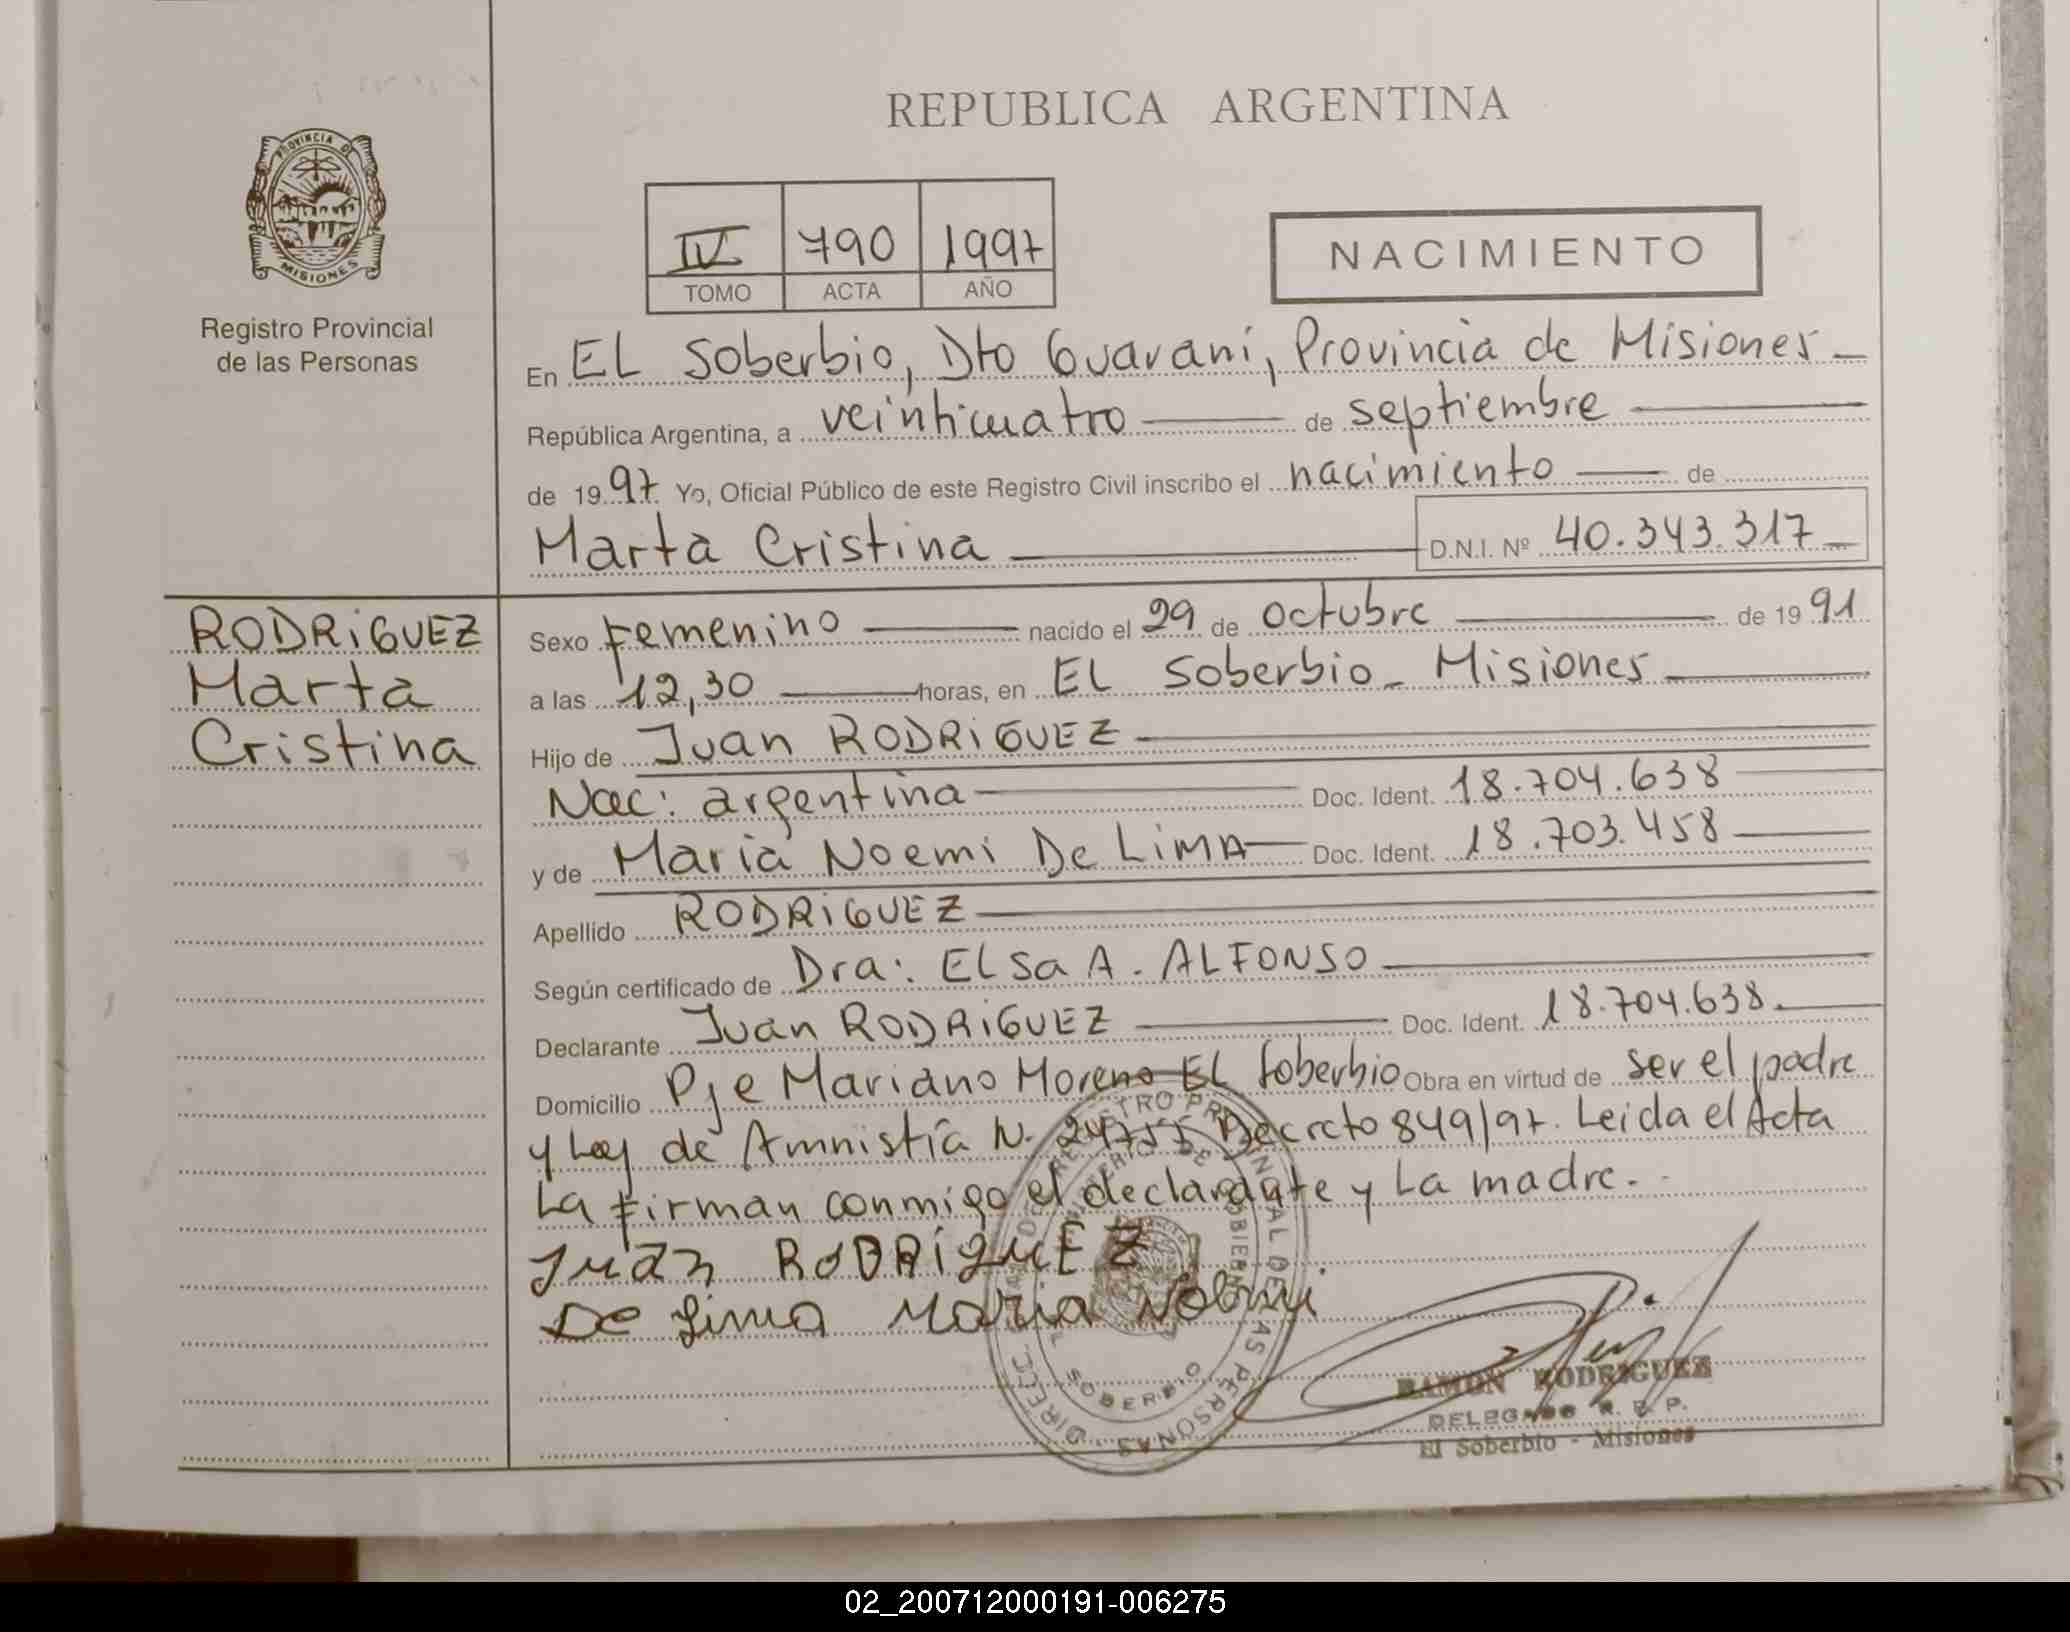 REPUBLICA ARGENTINA
PROVINCIA DE
MISIONES
Registro Provincial
de las Personas
IV 790 1997
TOMO ACTA AÑO
NACIMIENTO
En EL Soberbio, Dto Guarani, Provincia de Misiones
República Argentina, a veinticuatro de septiembre
de 1997 Yo, Oficial Público de este Registro Civil inscribo el nacimiento de
Marta Cristina D.N.I. Nº 40.343.317
RODRIGUEZ
Marta
Cristina
Sexo Femenino nacido el 29 de octubre de 1991
a las 12,30 horas, en EL Soberbio - Misiones
Hijo de Juan RODRIGUEZ
Nac: argentina Doc. Ident. 18.704.638
y de Maria Noemi De LiMA Doc. Ident. 18.703.458
Apellido RODRIGUEZ
Según certificado de Dra: ELsa A. ALFONSO
Declarante Juan RODRIGUEZ Doc. Ident. 18.704.638.
Domicilio Pje Mariano Moreno EL Soberbio Obra en virtud de ser el padre
y Ley de Amnistía N. 24755 Decreto 849/97. Leida el Acta
La firman conmigo el declarante y La madre.
Juan RODRIGUEZ
De Lima Maria Noemi
DIRECC. REGISTRO PROVINCIAL DE LAS PERSONAS
EL SOBERBIO
RAMON RODRIGUEZ
DELEGADO R. P. P.
El Soberbio - Misiones
02_200712000191-006275